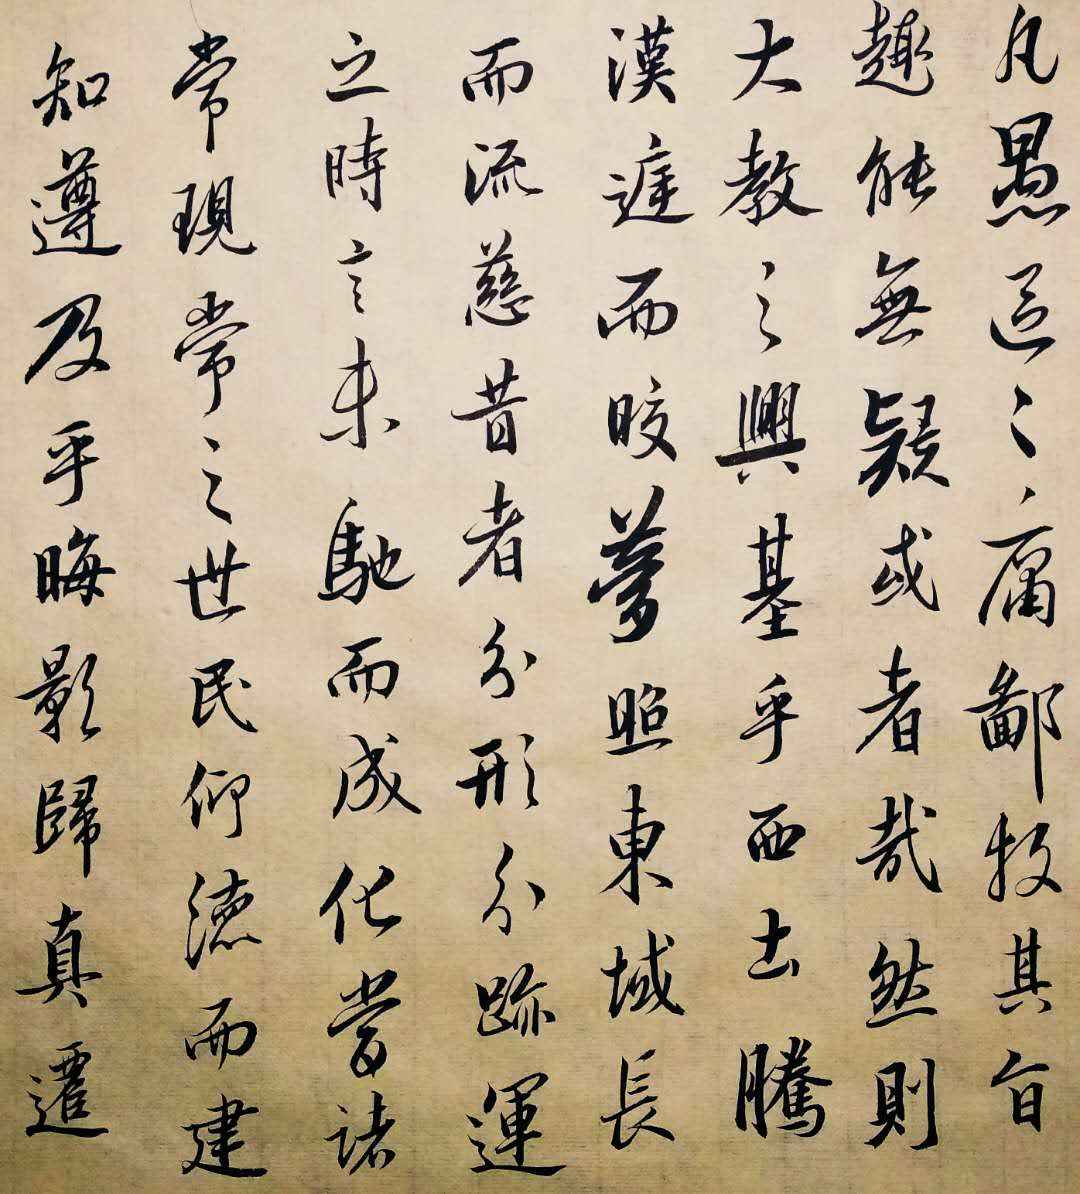 凡愚區〻庸鄙投其旨
趣能無疑或者哉然則
大教之興基乎西土騰
漢庭而晈夢照東域長
而流慈昔者分形分跡運
之時言未馳而成化當諸
常現常之世民仰德而建
知遵及乎晦影歸真遷